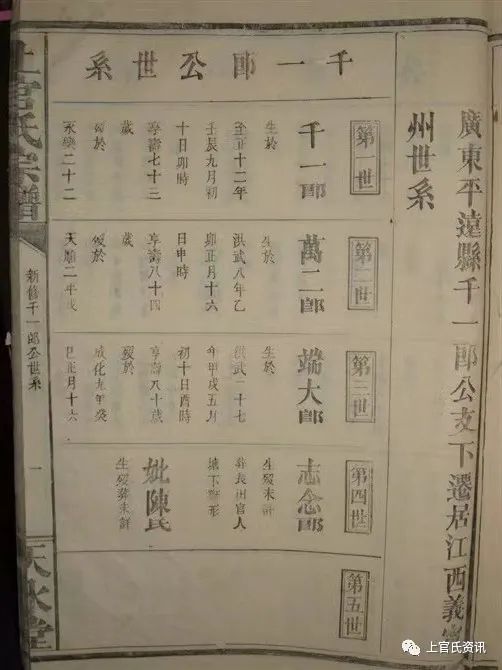 廣東平遠縣千一郎公支下遷居江西義寧
州世系
千一郎公世系
第一世
千一郎
生於
至正十二年
壬辰九月初
十日卯時
享壽七十三
歲
歿於
永樂二十二
第二世
萬二郎
生於
洪武八年乙
卯正月十六
日申時
享壽八十四
歲
歿於
天順二年戊
第三世
端大郎
生於
洪武二十七
年甲戌五月
初十日酉時
享壽八十歲
歿於
成化九年癸
巳正月十六
第四世
志念郎
生歿未詳
葬長田官人
妣陳氏
生歿葬未詳
第五世
上官氏宗譜
新修千一郎公世系
一
天水堂
上官氏资讯